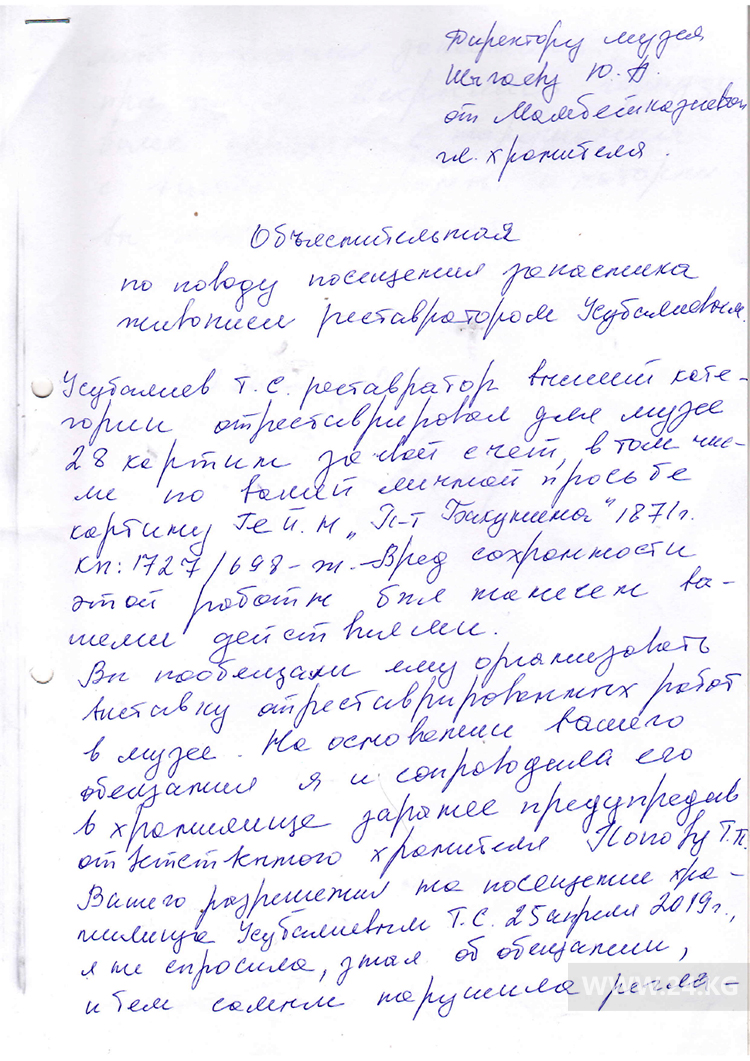 Директору музея
Шыгаеву Ю.А.
от Мамбетказиевой
гл. хранителя.
Объяснительная
по поводу посещения запасника
живописи реставратором Усубалиевым.
Усубалиев Т.С. реставратор высшей кате-
гории отреставрировал для музея
28 картин за свой счет, в том чис-
ле по вашей личной просьбе
картину Ге Н.Н „П-т Бакунина" 1871г.
КП: 1727/698-ж. Вред сохранности
этой работы был нанесен ва-
шеми действиями.
Вы пообещали ему организовать
выставку отреставрированных работ
в музее. На основании вашего
обещания я и сопроводила его
в хранилище заранее предупредив
ответственного хранителя Попову Т.П.
Вашего разрешения на посещение хра-
нилища Усубалиевым Т.С. 25 апреля 2019г.,
я не спросила, зная об обещании,
и тем самым нарушила регла-
WWW.24.KG